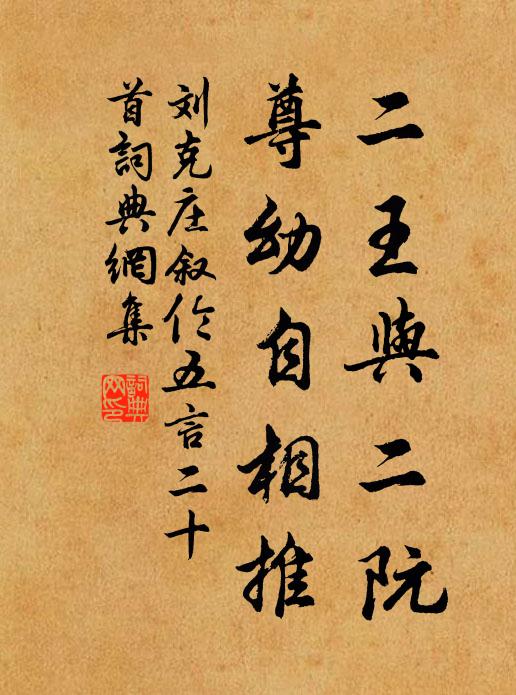 二王與二阮
尊幼自相推
刘克庄叙伦五言二十
首詞典網集
詞典網印